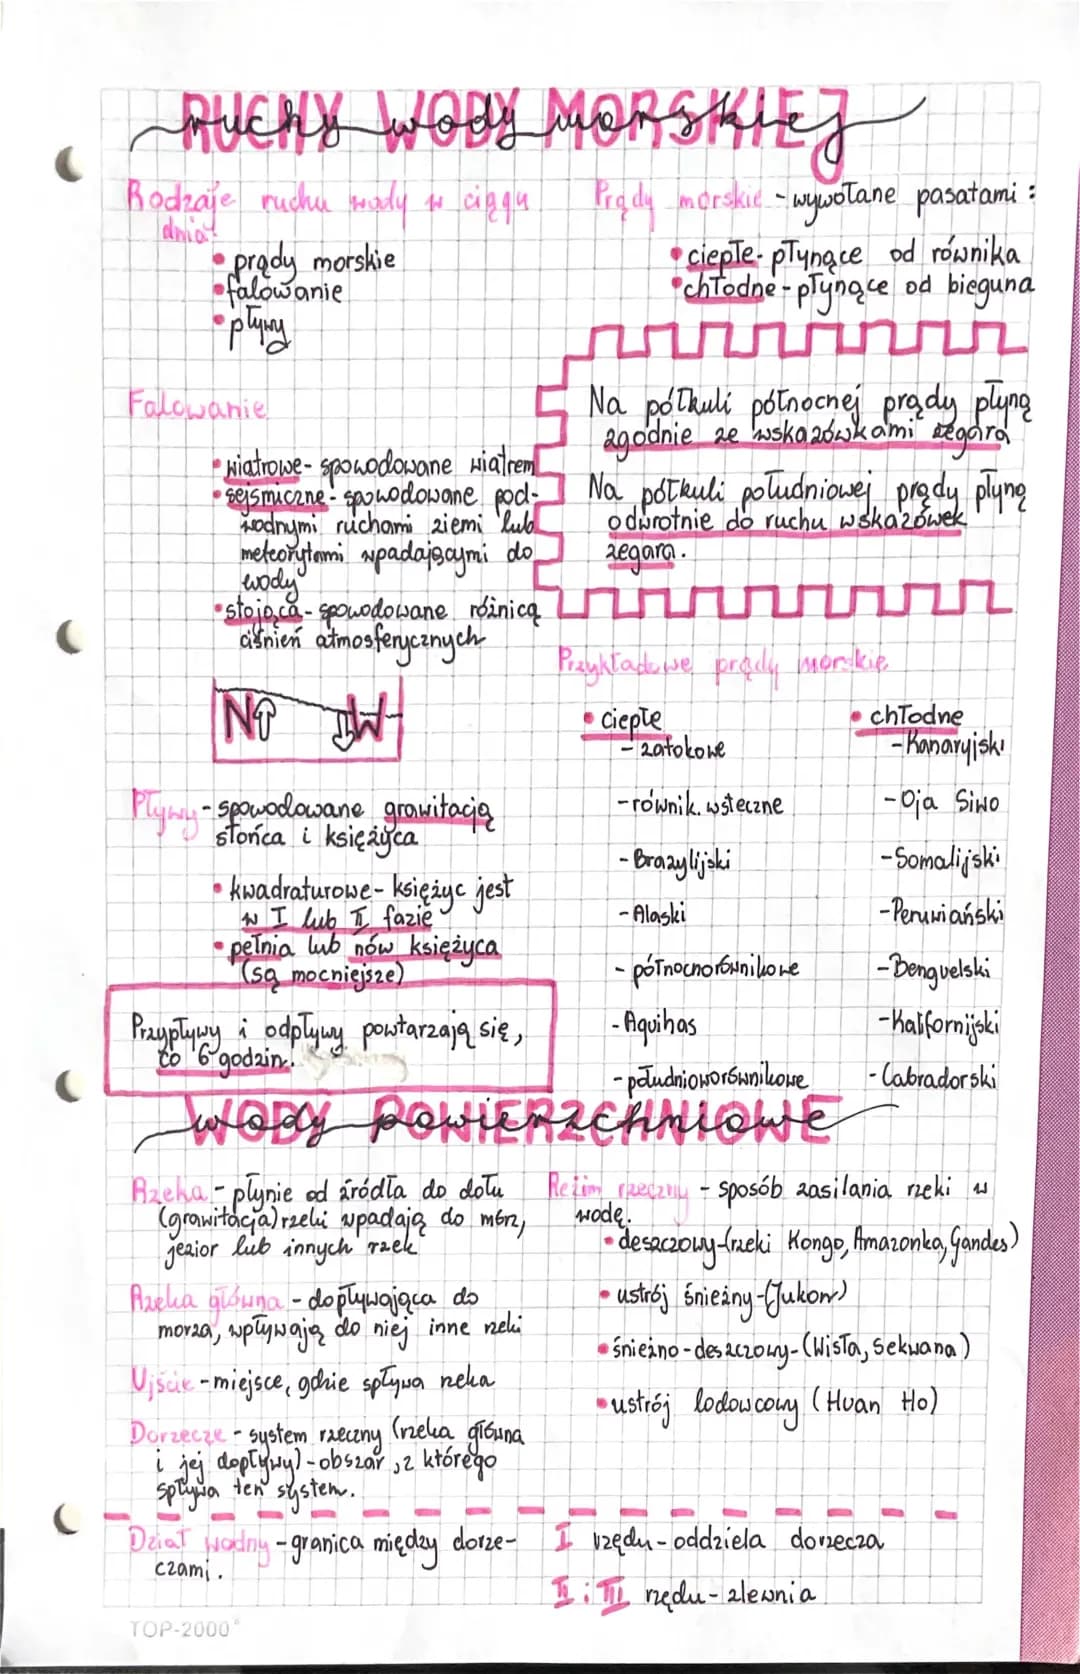 RUCHY WODY MORSKIEJ
ruchy wody morskiej
Rodzaje ruchu wody w ciągu
dnia:
• prądy morskie
• falowanie
• pływy
Prądy morskie - wywołane pasatami :
• ciepłe - płynące od równika
• chłodne - płynące od bieguna
Falowanie
• wiatrowe - spowodowane wiatrem
• sejsmiczne - spowodowane pod-
wodnymi ruchami ziemi lub
meteorytami wpadającymi do
wody
• stojąca - spowodowane różnicą
ciśnień atmosferycznych
N W
Na półkuli północnej prądy płyną
zgodnie ze wskazówkami zegara
Na półkuli południowej prądy płyną
odwrotnie do ruchu wskazówek
zegara.
Pływy - spowodowane grawitacją
słońca i księżyca
• kwadraturowe - księżyc jest
w I lub II fazie
• pełnia lub nów księżyca
(są mocniejsze)
Przypływy i odpływy powtarzają się,
co 6 godzin.
Przykładowe prądy morskie
• ciepłe
- zatokowe
- równik. wsteczne
- Brazylijski
- Alaski
- północnorównikowe
- Aquihas
- południoworównikowe
• chłodne
- Kanaryjski
- Oja Siwo
- Somalijski
- Peruwiański
- Benguelski
- Kalifornijski
- Labradorski
WODY POWIERZCHNIOWE
wody powierzchniowe
Rzeka - płynie od źródła do dołu
(grawitacja) rzeki wpadają do mórz,
jezior lub innych rzek
Rzeka główna - dopływająca do
morza, wpływają do niej inne rzeki
Ujście - miejsce, gdzie spływa rzeka
Dorzecze - system rzeczny (rzeka główna
i jej dopływy) - obszar, z którego
spływa ten system.
Reżim rzeczny - sposób zasilania rzeki w
wodę.
• deszczowy - (rzeki Kongo, Amazonka, Gandes)
• ustrój śnieżny - (Jukon)
• śnieżno - deszczowy - (Wisła, Sekwana)
• ustrój lodowcowy (Huan Ho)
Dział wodny - granica między dorze-
czami.
I rzędu - oddziela dorzecza
II i III rzędu - zlewnia
TOP-2000